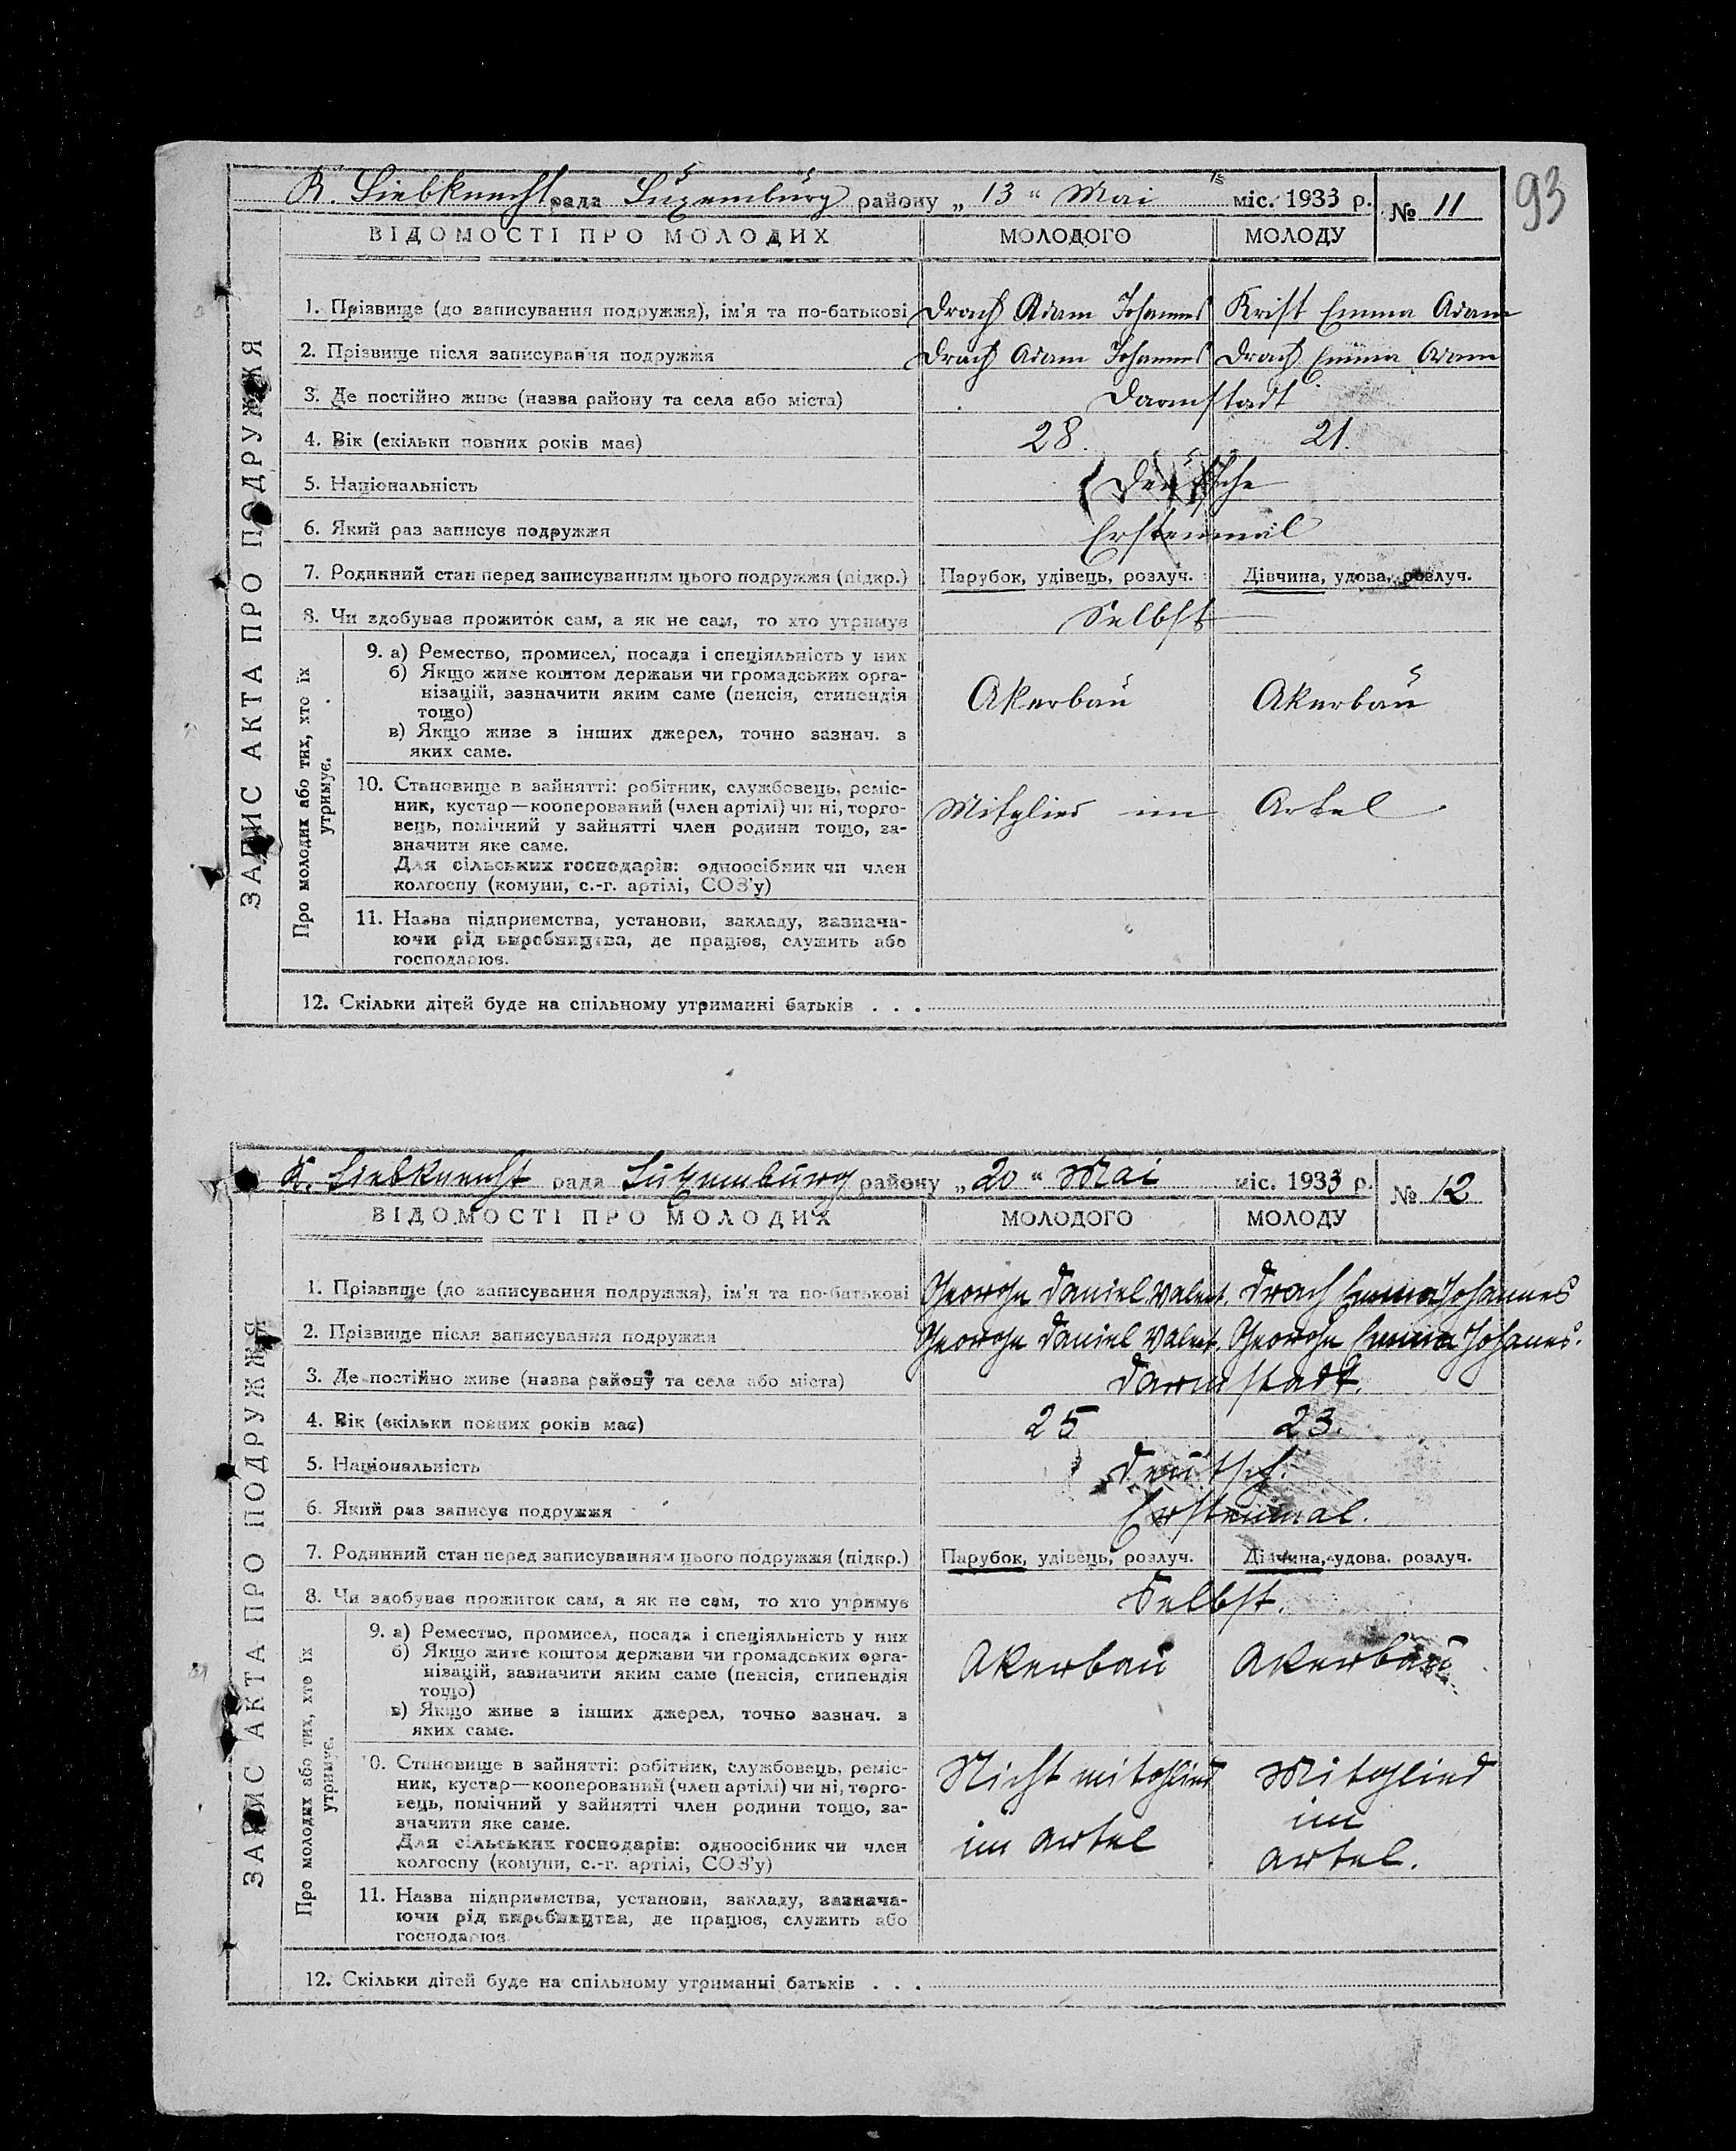 93
K. Liebknecht рада Luxemburg району „ 13 “ Mai міс. 1933 р. № 11
ВІДОМОСТІ ПРО МОЛОДИХ МОЛОДОГО МОЛОДУ
ЗАПИС АКТА ПРО ПОДРУЖЖЯ
1. Прізвище (до записування подружжя), ім'я та по-батькові Drach Adam Johannes Krist Emma Adam
2. Прізвище після записування подружжя Drach Adam Johannes Drach Emma Adam
3. Де постійно живе (назва району та села або міста) Darmstadt
4. Вік (скільки повних років має) 28. 21.
5. Національність Deutsche
6. Який раз записує подружжя Erstenmal
7. Родинний стан перед записуванням цього подружжя (підкр.) Парубок, удівець, розлуч. Дівчина, удова, розлуч.
8. Чи здобуває прожиток сам, а як не сам, то хто утримує Selbst
Про молодих або тих, хто їх утримує.
9. а) Ремество, промисел, посада і спеціяльність у них
б) Якщо живе коштом держави чи громадських орга-
нізацій, зазначити яким саме (пенсія, стипендія
тощо)
Akerbau Akerbau
в) Якщо живе з інших джерел, точно зазнач. з
яких саме.
10. Становище в зайнятті: робітник, службовець, реміс-
ник, кустар—кооперований (член артілі) чи ні, торго-
вець, помічний у зайнятті член родини тощо, за-
значити яке саме.
Mitglied im Artel
Для сільських господарів: одноосібник чи член
колгоспу (комуни, с.-г. артілі, СОЗ'у)
11. Назва підприємства, установи, закладу, зазнача-
ючи рід виробництва, де працює, служить або
господарює.
12. Скільки дітей буде на спільному утриманні батьків . . .
K. Liebknecht рада Luxemburg району „ 20 “ Mai міс. 1933 р. № 12
ВІДОМОСТІ ПРО МОЛОДИХ МОЛОДОГО МОЛОДУ
ЗАПИС АКТА ПРО ПОДРУЖЖЯ
1. Прізвище (до записування подружжя), ім'я та по-батькові George Daniel Valent. Drach Emma Johannes
2. Прізвище після записування подружжя George Daniel Valent. George Emma Johanes.
3. Де постійно живе (назва району та села або міста) Darmstadt.
4. Вік (скільки повних років має) 25 23.
5. Національність Deutsch.
6. Який раз записує подружжя Erstenmal.
7. Родинний стан перед записуванням цього подружжя (підкр.) Парубок, удівець, розлуч. Дівчина, удова, розлуч.
8. Чи здобуває прожиток сам, а як не сам, то хто утримує Selbst.
Про молодих або тих, хто їх утримує.
9. а) Ремество, промисел, посада і спеціяльність у них
б) Якщо живе коштом держави чи громадських орга-
нізацій, зазначити яким саме (пенсія, стипендія
тощо)
Akerbau Akerbau
в) Якщо живе з інших джерел, точно зазнач. з
яких саме.
10. Становище в зайнятті: робітник, службовець, реміс-
ник, кустар—кооперований (член артілі) чи ні, торго-
вець, помічний у зайнятті член родини тощо, за-
значити яке саме.
Для сільських господарів: одноосібник чи член
колгоспу (комуни, с.-г. артілі, СОЗ'у)
Nicht mitglied
im artel
Mitglied
im
artel.
11. Назва підприємства, установи, закладу, зазнача-
ючи рід виробництва, де працює, служить або
господарює
12. Скільки дітей буде на спільному утриманні батьків . . .